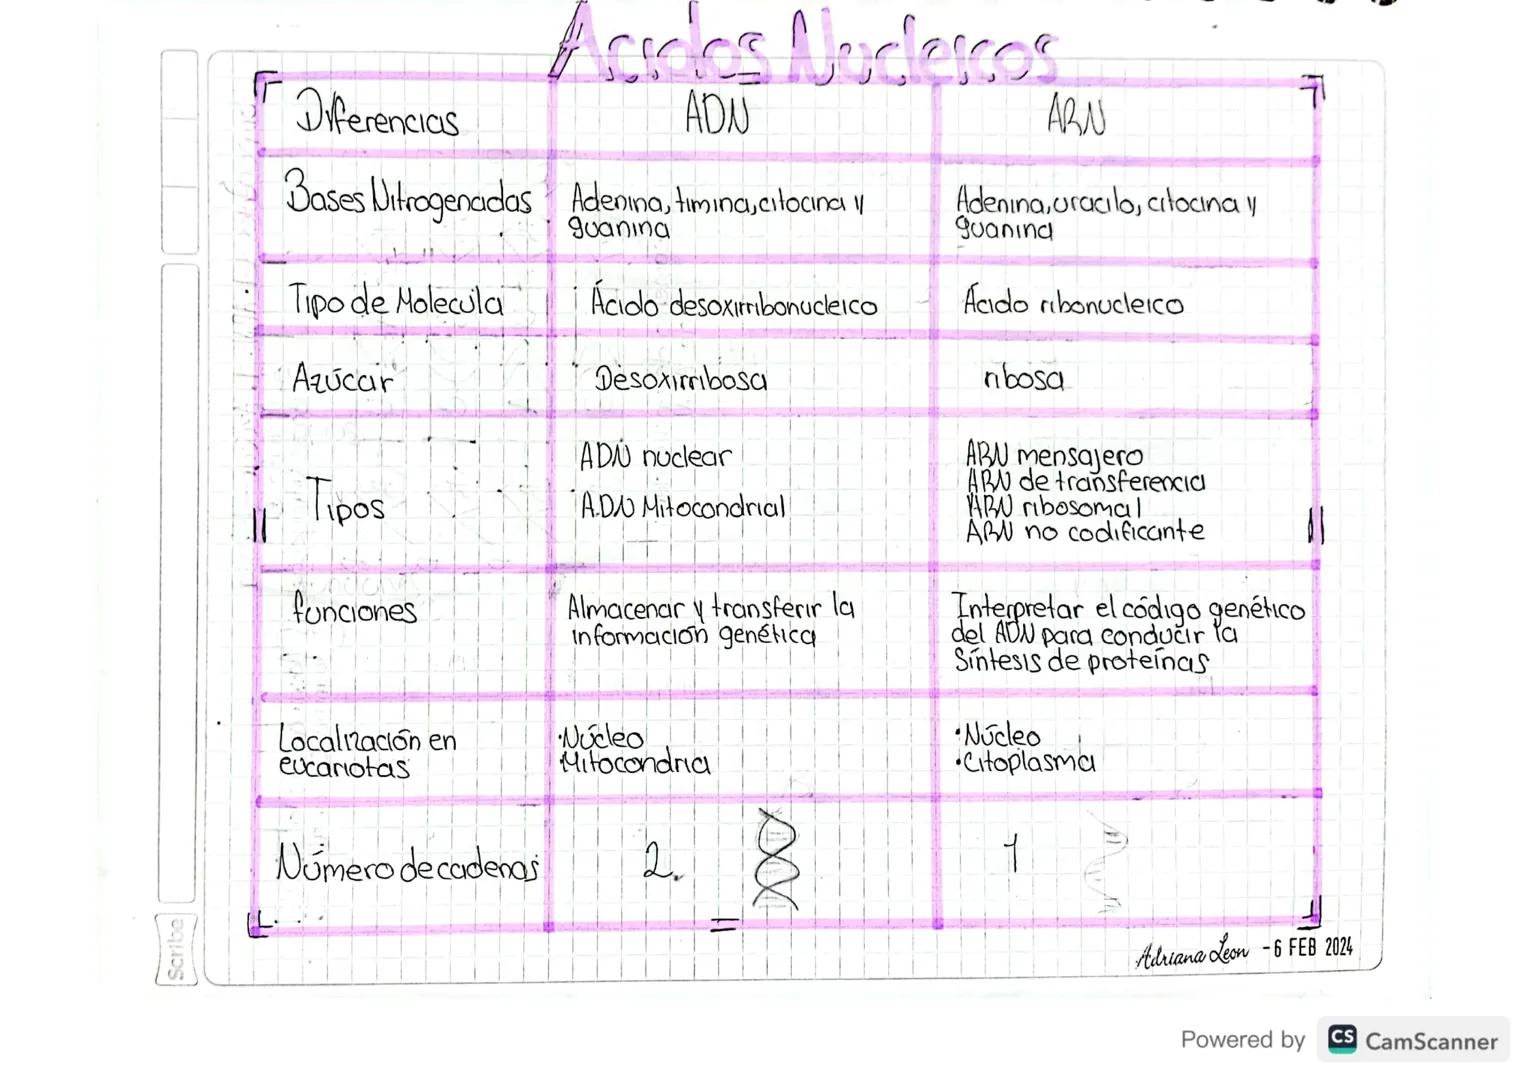 Acidos Nucleicos
Diferencias ADN ARN
Bases Nitrogenadas
Adenina, timina, citocina y
guanina
Adenina, uracilo, citocina y
guanina
Tipo de Molecula
Ácido desoxirribonucleico
Ácido ribonucleico
Azúcar
Desoxirribosa
ribosa
Tipos
ADN nuclear
ADN Mitocondrial
ARN mensajero
ARN de transferencia
ARN ribosomal
ARN no codificante
funciones
Almacenar y transferir la
información genética
Interpretar el código genético
del ADN para conducir la
Síntesis de proteínas
Localización en
eucariotas
·Núcleo
·Mitocondria
·Núcleo
·Citoplasma
Número de cadenas
2.
1
Adriana Leon -6 FEB 2024
Scribe
Powered by CS CamScanner